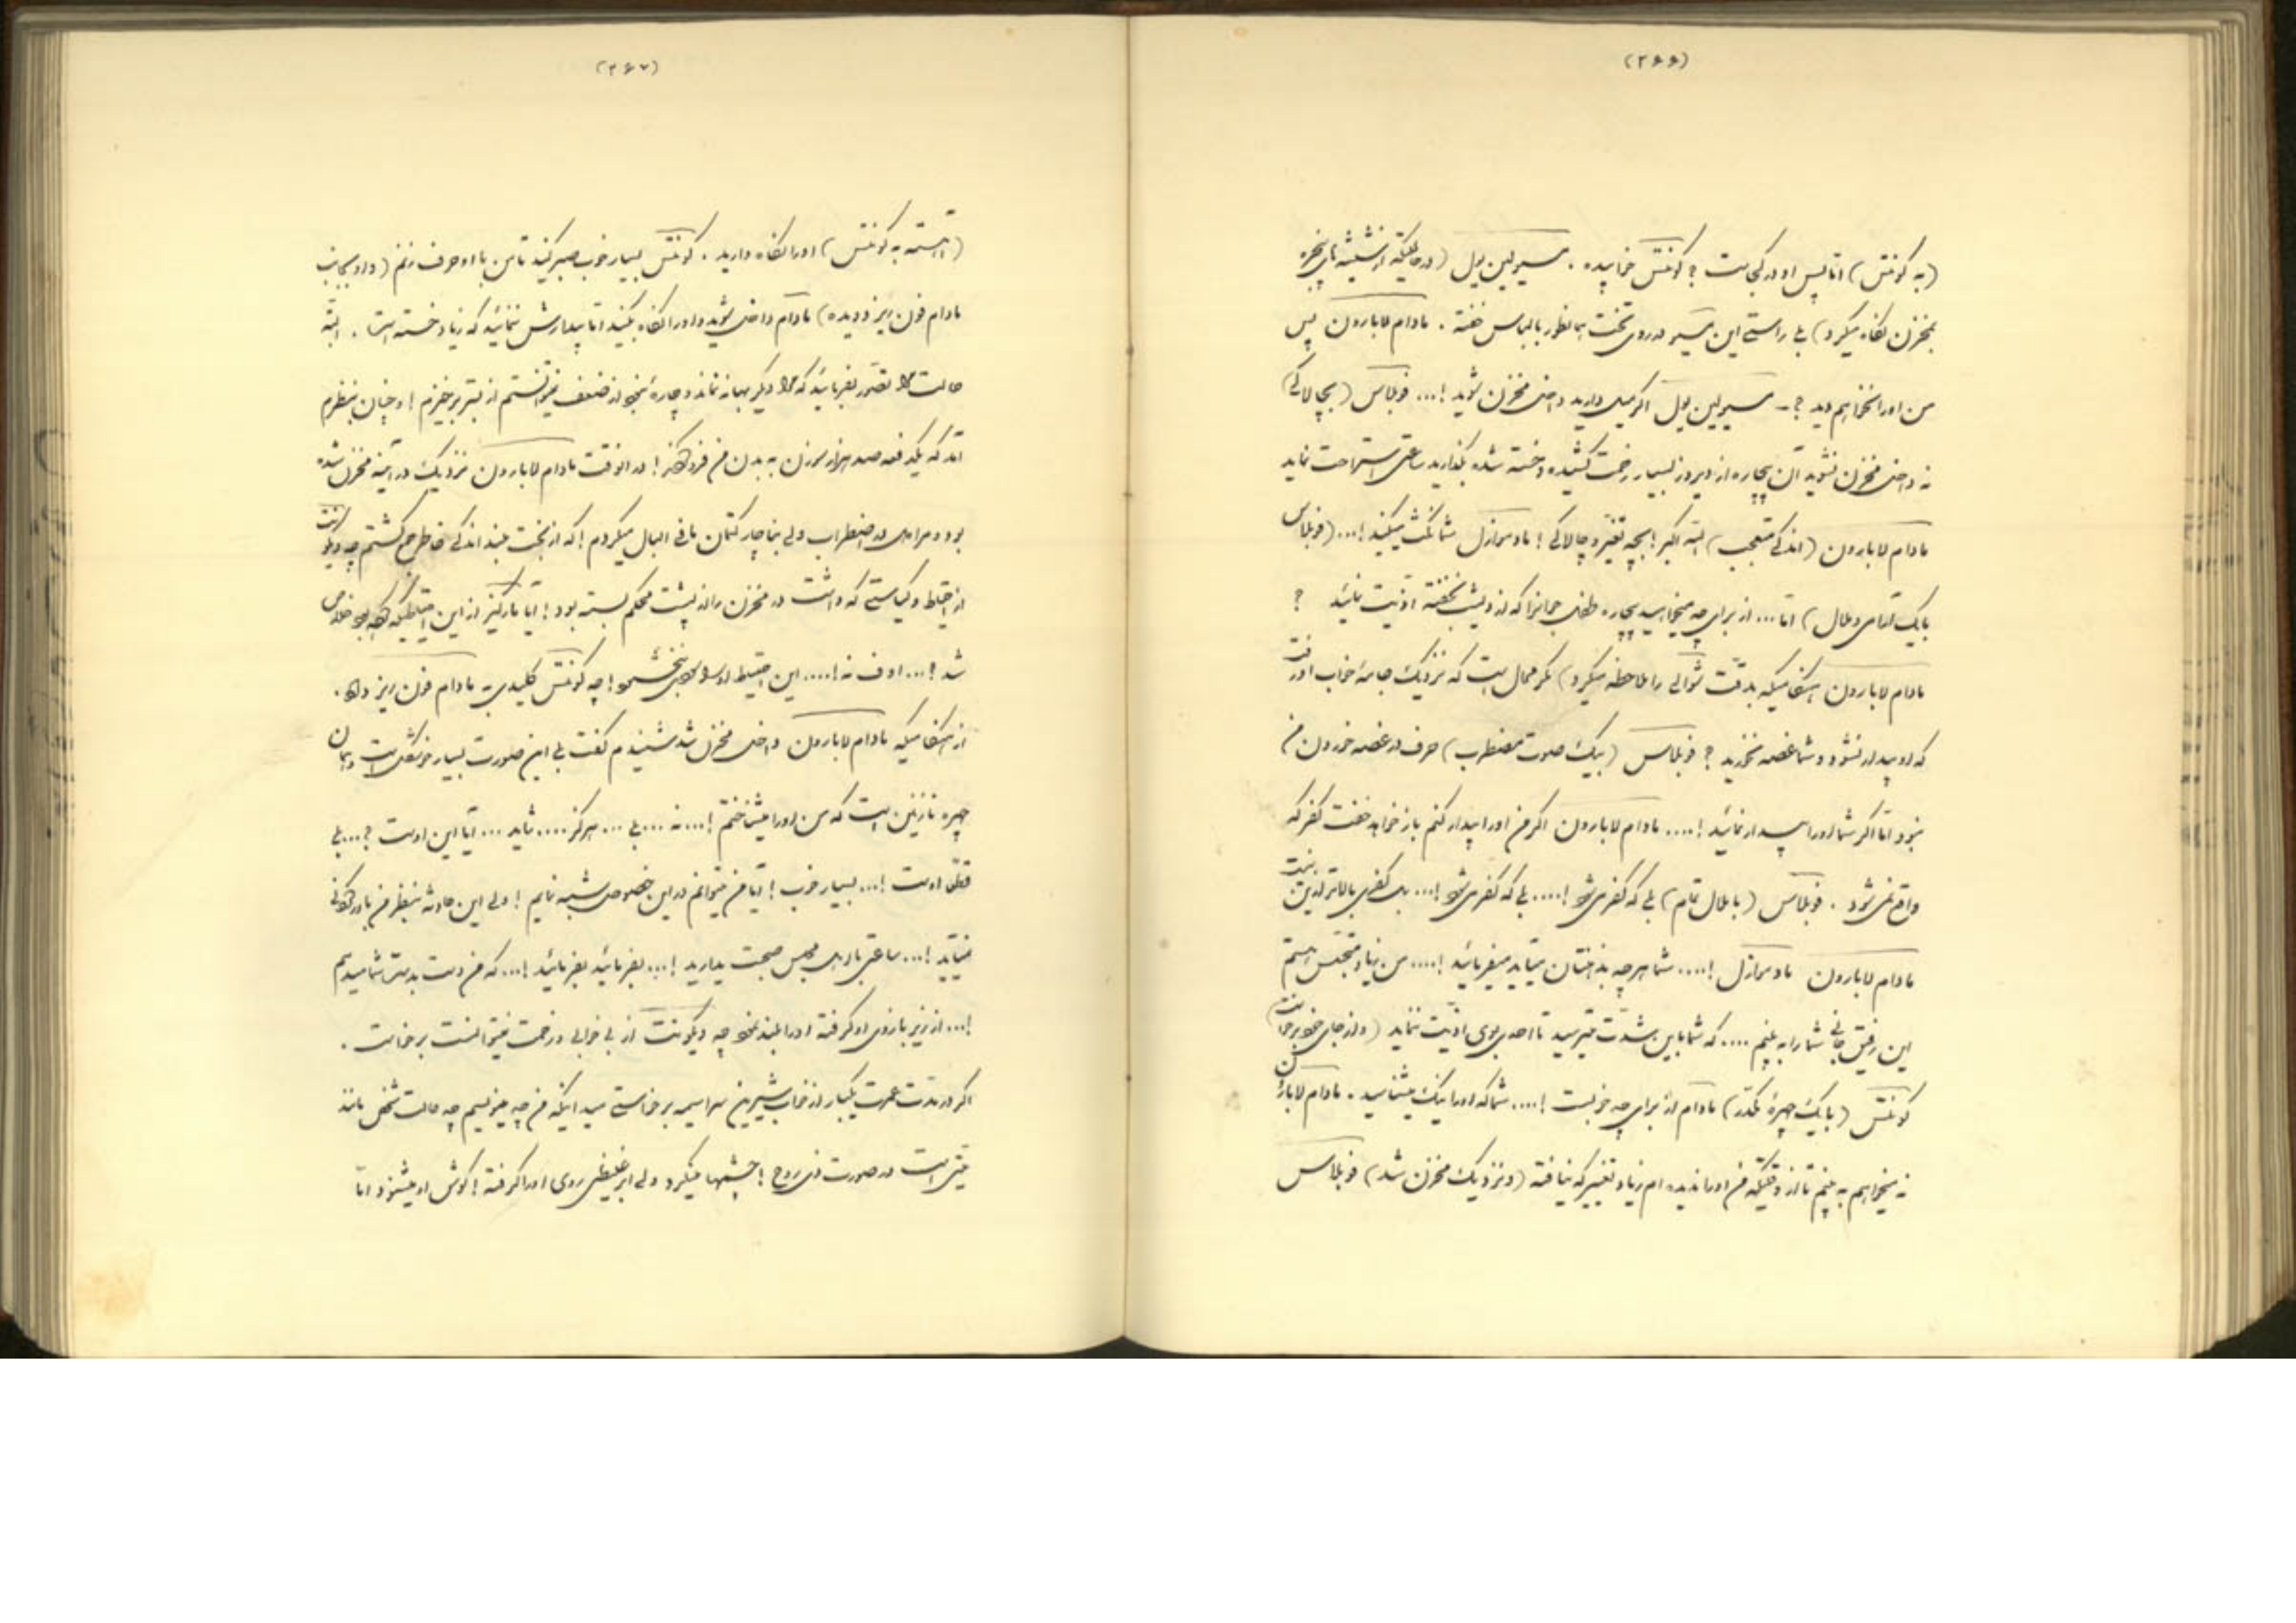 (۲۶۶)
(به کونتس) اما پس او در کجاست ؟ کونتس خوابیده . مسیو لین یول (در حالتیکه از شیشه های پنجره
بمخزن نگاه میکرد) بلی راستی این مسیو در روی تخت همانطور با لباس خفته . مادام لابارون پس
من او را نخواهم دید ؟ ـ مسیو لین یول اگر میل دارید داخل مخزن شوید !... فوبلاس (بچالاکی)
نه داخل مخزن نشوید آن بیچاره از دیروز بسیار زحمت کشیده و خسته شده بگذارید ساعتی استراحت نماید
مادام لابارون (اندکی متعجب) الله اکبر ! بچه تغیر و چالاکی ! مادموازل شما نکث میکنید !... (فوبلاس
با یک ملال) اما ... از برای چه میخواهید بیچاره طفل جوانرا که از دیشب نخفته اذیت نمائید ؟
مادام لابارون هنگامیکه بدقت شوالی را ملاحظه میکرد) مگر محال است که نزدیک جامهٔ خواب او رفت
که او بیدار نشود و شما غصه نخورید ؟ فوبلاس (بیک صوت مضطرب) حرف در غصه خوردن من
نبود اما اگر شما او را بیدار نمائید !.... مادام لابارون اگر من او را بیدار کنم باز خواهد خفت کفر که
واقع نمی شود . فوبلاس (با ملال تمام) بلی که کفر می شود !.... بلی که کفر می شود !... یک کفری بالاتر از این نیست
مادام لابارون مادموازل !.... شما هر چه بذهنتان میاید میفرمائید !.... من زیاد متجسس هستم
این رفیق جانی شما را به بینم .... که شما باین شدت میترسید تا احدی بوی اذیت نماید (و از جای خود برخاست)
کونتس (با یک چهرهٔ مکدر) مادام از برای چه خوبست !.... شما که او را نیک میشناسید . مادام لابارون
نه میخواهم به بینم تا از وقتیکه من او را ندیده ام زیاد تغییر که نیافته (و نزدیک مخزن شد) فوبلاس
(۲۶۷)
(آهسته به کونتس) او را نگاه دارید . کونتس بسیار خوب صبر کنید تا من با او حرف زنم (داد بجانب
مادام فون ریز دویده) مادام داخل شوید و او را نگاه بکنید اما بیدارش ننمائید که زیاد خسته است . البته
حالت مرا تصور بفرمائید که مرا دیگر بهانه نماند و چارهٔ بجز از ضعف نمیتوانستم از بستر برخیزم ! و چنان بنظرم
آمد که یکدفعه صد هزار سوزن به بدن من فرو کنند ! در آنوقت مادام لابارون نزدیک در آینه مخزن شده
بود و مرا در اضطراب ولی بناچار کتمان مافی البال میکردم ! که از بخت بلند اندکی خاطر جمع گشتم چه ویکونت
از احتیاط و کیاستی که داشت در مخزن را از پشت محکم بسته بود ! آیا مارکیز از این احتیاطیکه کرده بود خلاص
شد ؟... اوف نه !.... این احتیاط او سودی نبخشود ! چه کونتس کلیدی به مادام فون ریز داد .
از هنگامیکه مادام لابارون داخل مخزن شد شنیدم گفت بلی این صورت بسیار خوشگل است و همان
چهره نازنین است که من او را میشناختم !... نه ... بلی ... هرگز .... شاید ... آیا این اوست ؟... بلی
قطعا اوست !... بسیار خوب ! آیا من میتوانم در این خصوص شبهه نمایم ! ولی این حادثه بنظر من باور کردنی
نمیآید !... ساعتی با در مجلس صحبت بدارید !... بفرمائید بفرمائید !... که من دست بدست شما میدهم
!... از زیر بازوی او گرفته او را بلند نمود چه ویکونت از بی خوابی و زحمت نمیتوانست برخاست .
اگر در مدت عمرت یکبار از خواب شیرین سراسیمه برخاستی میدانیکه من چه مینویسم چه حالت شخص مانند
میتی است در صورت ذی روح ! چشمها میگرد ولی ابر غلیظی روی او را گرفته ! گوش او میشنود اما